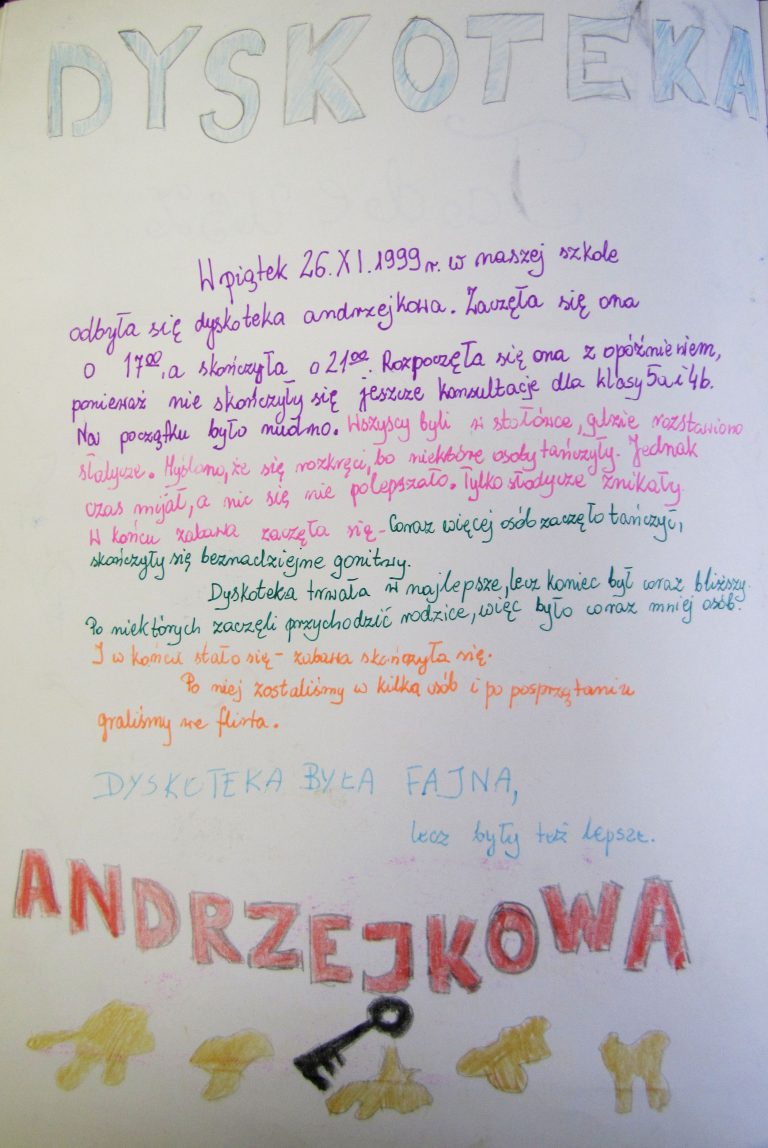 DYSKOTEKA
W piątek 26.XI.1999 r. w naszej szkole
odbyła się dyskoteka andrzejkowa. Zaczęła się ona
o 17⁰⁰, a skończyła o 21⁰⁰. Rozpoczęła się ona z opóźnieniem,
ponieważ nie skończyły się jeszcze konsultacje dla klasy 5a i 4b.
Na początku było nudno. Wszyscy byli w stołówce, gdzie rozstawiono
słodycze. Myślano, że się rozkręci, bo niektóre osoby tańczyły. Jednak
czas mijał, a nic się nie polepszało. Tylko słodycze znikały.
W końcu zabawa zaczęła się - Coraz więcej osób zaczęło tańczyć,
skończyły się beznadziejne gonitwy.
Dyskoteka trwała w najlepsze, lecz koniec był coraz bliższy.
Po niektórych zaczęli przychodzić rodzice, więc było coraz mniej osób.
I w końcu stało się - zabawa skończyła się.
Po niej zostaliśmy w kilka osób i po posprzątaniu
graliśmy we flirta.
DYSKOTEKA BYŁA FAJNA,
lecz były też lepsze.
ANDRZEJKOWA